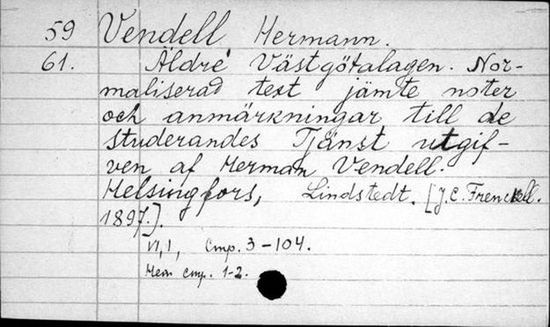 59 Vendell Hermann.
61. Äldre Västgötalagen. Nor-
maliserad text jämte noter
och anmärkningar till de
studerandes Tjänst utgif-
ven af Herman Vendell.
Helsingfors, Lindstedt. [J.C. Frenckell.
1897.].
VI, 1, Стр. 3-104.
Нем стр. 1-2.